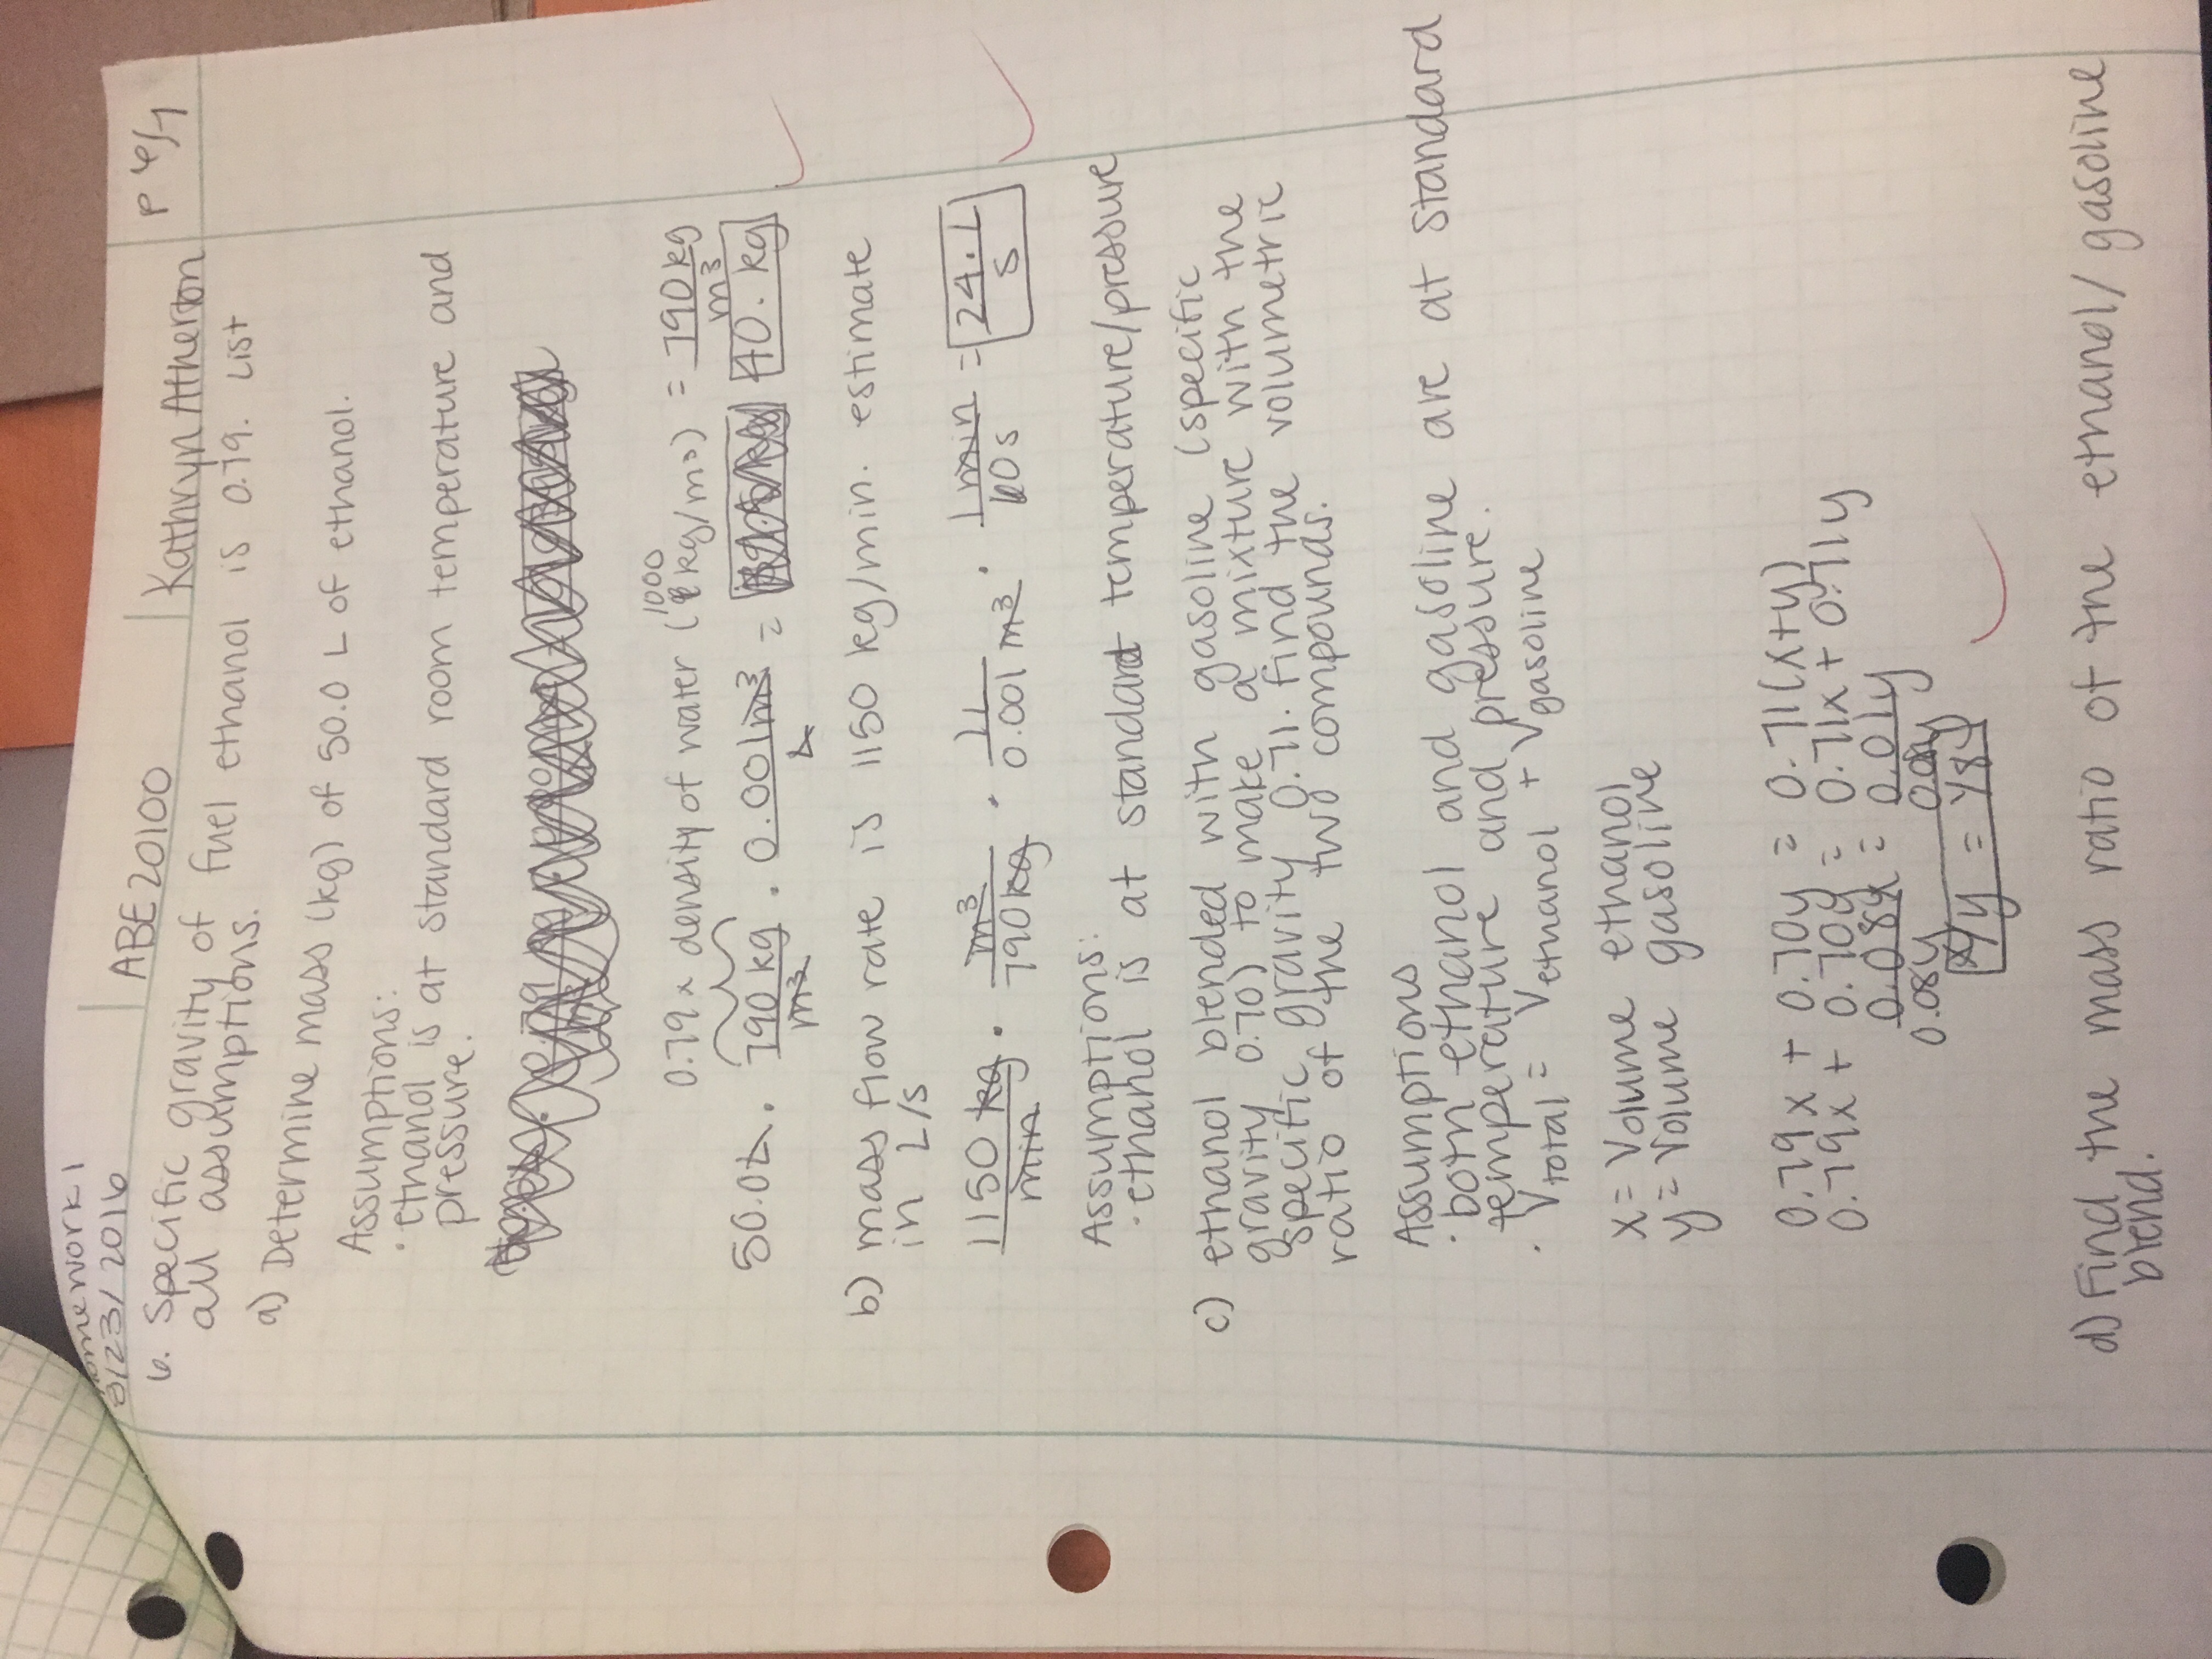 Homework 1
8/23/2016
ABE 20100
Kathryn Atherton
6. Specific gravity of fuel ethanol is 0.79. List
all assumptions.
a) Determine mass (kg) of 50.0 L of ethanol.
Assumptions:
• ethanol is at standard room temperature and
pressure.
0.79 x density of water (1000 kg/m³) = 790 kg/m³
50.0 L · 790 kg/m³ · 0.001 m³/L = 40. kg
b) mass flow rate is 1150 kg/min. estimate
in L/s
1150 kg/min · m³/790 kg · 1L/0.001 m³ · 1 min/60 s = 24. L/s
Assumptions:
· ethanol is at standard temperature/pressure
c) ethanol blended with gasoline (specific
gravity 0.70) to make a mixture with the
specific gravity 0.71. find the volumetric
ratio of the two compounds.
Assumptions
· both ethanol and gasoline are at standard
temperature and pressure.
· Vtotal = Vethanol + Vgasoline
x = Volume ethanol
y = Volume gasoline
0.79x + 0.70y = 0.71(x+y)
0.79x + 0.70y = 0.71x + 0.71y
0.08x = 0.01y
0.08y
x/y = 1/8
d) Find the mass ratio of the ethanol/gasoline
blend.